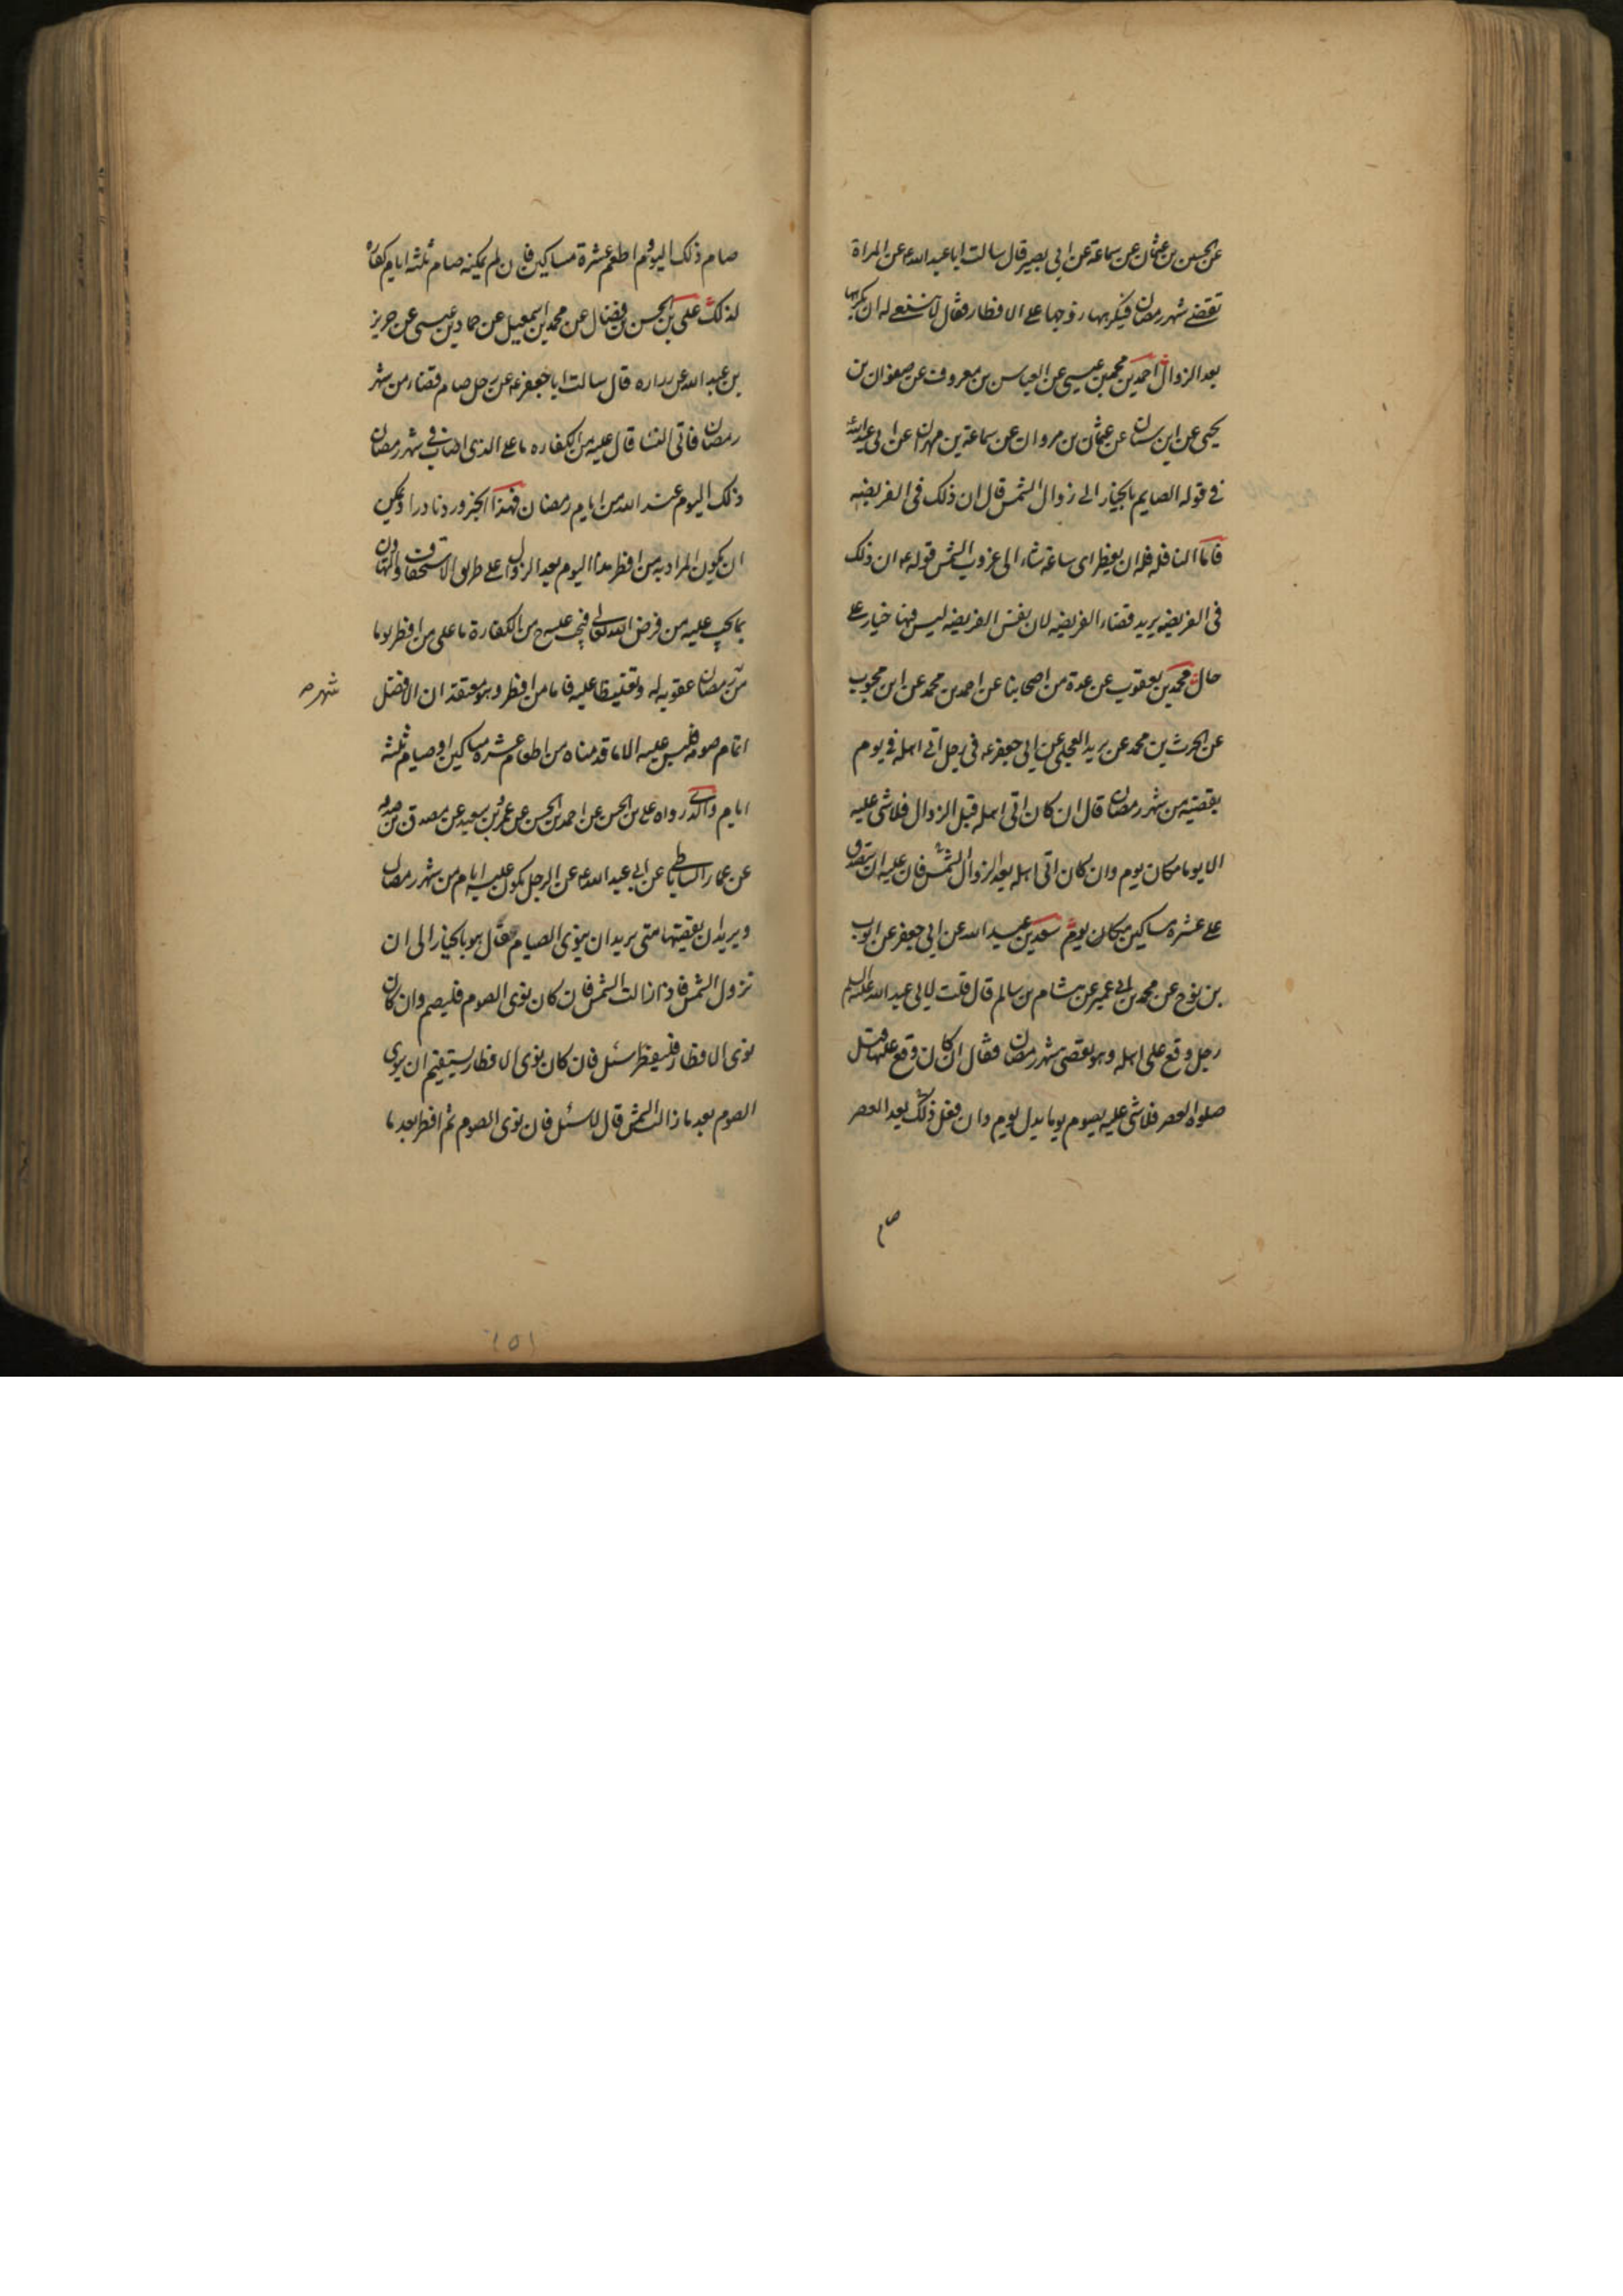 عن الحسين بن عثمان عن سماعة عن ابى بصير قال سالت ابا عبد الله ع عن المراة
تقضى شهر رمضان فيكرهها زوجها على الافطار فقال لا ينبغى له ان يكرهها
بعد الزوال احمد بن محمد بن عيسى عن العباس بن معروف عن صفوان بن
يحيى عن ابن سنان عن عثمان بن مروان عن سماعة بن مهران عن ابى عبد الله
فى قوله الصايم بالخيار الى زوال الشمس قال ان ذلك فى الفريضه
فاما النافله فله ان يفطر اى ساعة شاء الى غروب الشمس قوله ع ان ذلك
فى الفريضه يريد قضاء الفريضه لان نفس الفريضه ليس فيها خيار على
حال محمد بن يعقوب عن عدة من اصحابنا عن احمد بن محمد عن ابن محبوب
عن الحرث بن محمد عن بريد العجلى عن ابى جعفر ع فى رجل اتى اهله فى يوم
يقضيه من شهر رمضان قال ان كان اتى اهله قبل الزوال فلا شى عليه
الا يوما مكان يوم وان كان اتى اهله بعد الزوال الشمس فان عليه ان يتصدق
على عشره مساكين مكان يوم سعد بن عبد الله عن ابى جعفر عن ايوب
بن نوح عن محمد بن ابى عمير عن هشام بن سالم قال قلت لابى عبد الله عليه السلم
رجل وقع على اهله وهو يقضى شهر رمضان فقال ان كان وقع عليها قبل
صلواة العصر فلا شى عليه يصوم يوما بدل يوم وان فعل ذلك بعد العصر
صام
صام ذلك اليوم و اطعم عشرة مساكين فان لم يمكنه صام ثلثه ايام كفاره
لذلك على بن الحسن بن فضال عن محمد بن اسمعيل عن حماد بن عيسى عن حريز
بن عبد الله عن زراره قال سالت ابا جعفر ع عن رجل صام قضاء من شهر
رمضان فاتى النسا قال عليه من الكفاره ما على الذى اصاب فى شهر رمضان
ذلك اليوم عند الله من ايام رمضان فهذا الخبر ورد نادرا ويمكن
ان يكون المراد به من افطر هذا اليوم بعد الزوال على طريق الاستخفاف والتهاون
بما يجب عليه من فرض الله تعالى فيجب عليه ح من الكفارة ما على من افطر يوما
من رمضان عقوبه له وتغليظا عليه فاما من افطر وهو معتقد ان الافضل
شهر ص
اتمام صومه فليس عليه الا ما قدمناه من اطعام عشره مساكين او صيام ثلثه
ايام والذى رواه على بن الحسن عن احمد بن الحسن عن عمرو بن سعيد عن مصدق بن صدقه
عن عمار الساباطى عن ابى عبد الله ع عن الرجل يكون عليه ايام من شهر رمضان
ويريد ان يقضيها متى يريد ان ينوى الصيام قال هو بالخيار الى ان
تزول الشمس فاذا زالت الشمس فان كان نوى الصوم فليصم وان كان
نوى الافطار فليفطر سئل فان كان نوى الافطار يستقيم ان ينوى
الصوم بعد ما زالت الشمس قال لا سئل فان نوى الصوم ثم افطر بعد ما
١٥١